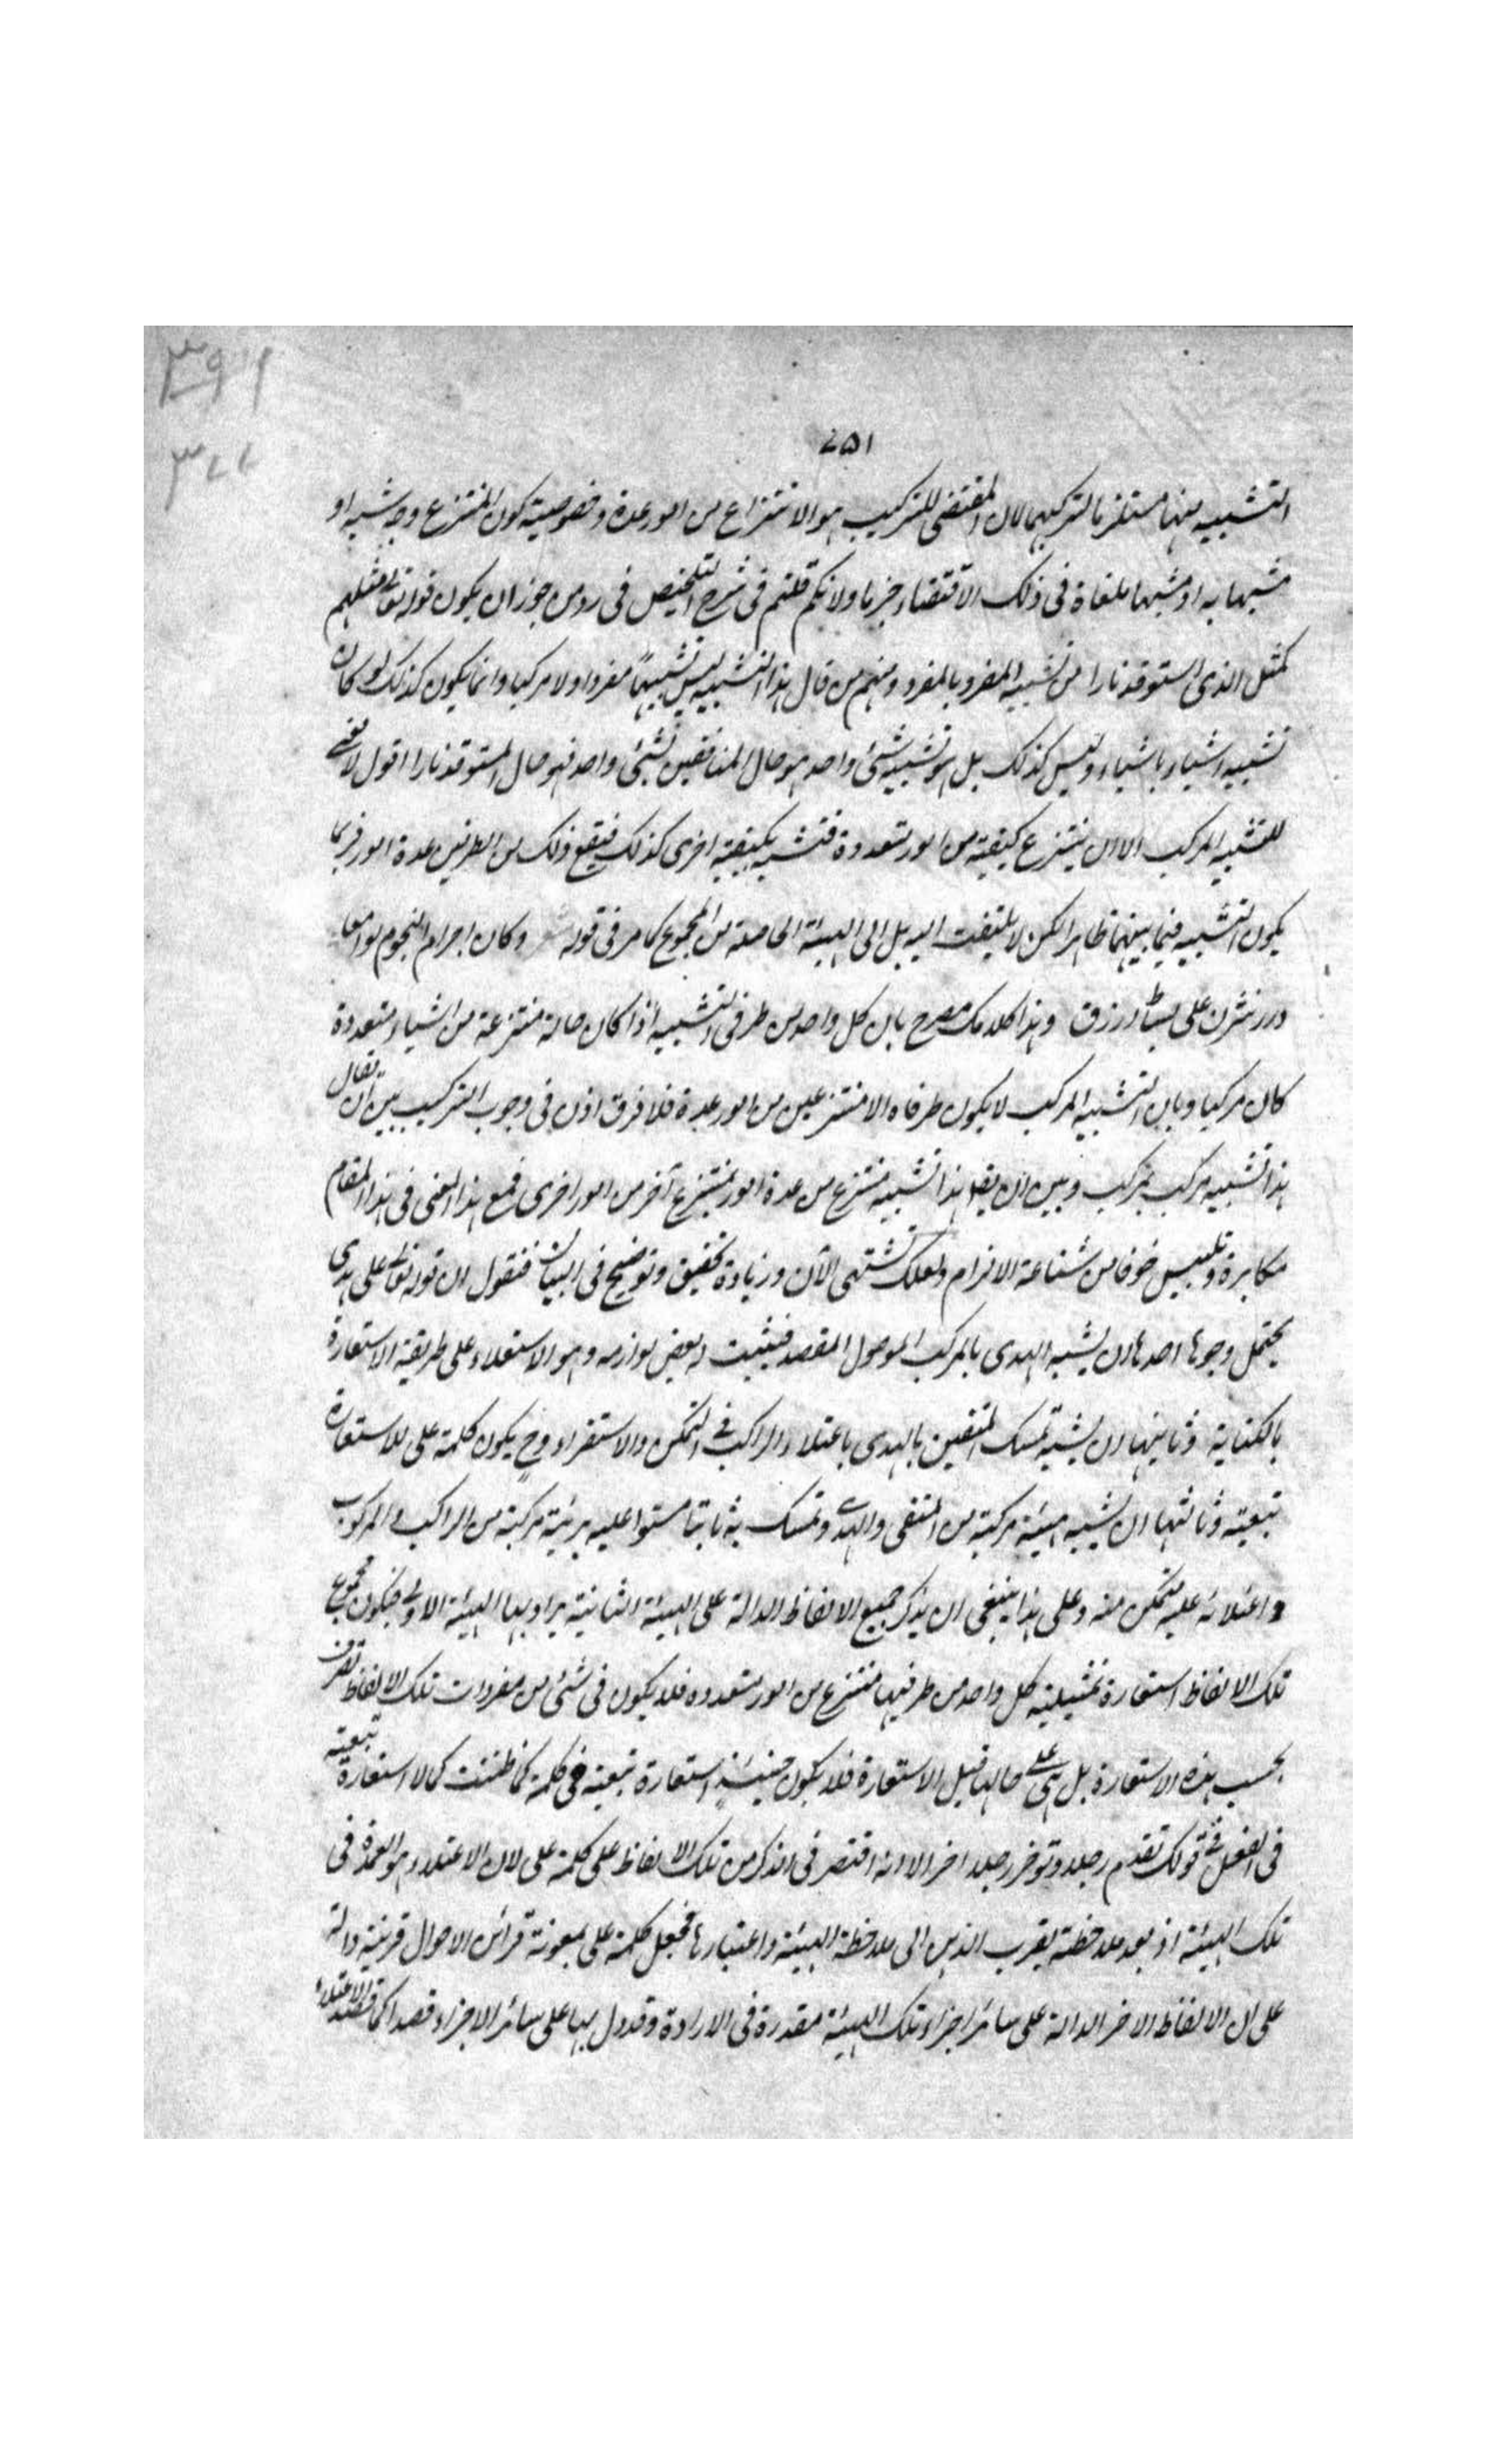 ٣٩١
٣٧٧
٧٥١
التشبيه منهما مستلزما لتركيبهما لان المقتضى للتركيب هو الانتزاع من امور عدة وخصوصية كون المنتزع وجه شبه او
مشبها به او مشبها ملغاة فى ذلك الاقتضاء جزما ولانكم قلتم فى شرح التلخيص فى رد من جوز ان يكون قوله تعالى مثلهم
كمثل الذى استوقد نارا من تشبيه المفرد بالمفرد ومنهم من قال هذا التشبيه ليس تشبيها مفردا ولا مركبا وانما يكون كذلك لو كان
تشبيه اشياء باشياء وليس كذلك بل هو تشبيه شئ واحد هو حال المنافقين بشئ واحد هو حال المستوقد نارا اقول لا معنى
للتشبيه المركب الا ان ينتزع كيفية من امور متعددة فتشبه بكيفية اخرى كذلك فيقع ذلك من الطرفين عدة امور فربما
يكون التشبيه فيما بينهما ظاهرا لكن لا يلتفت اليه بل الى الهيئة الحاصلة من المجموع كما مر فى قوله وكان اجرام النجوم لوامعا
درر نثرن على بساط ازرق وهذا كلامك مصرح بان كل واحد من طرفى التشبيه اذا كان حالة منتزعة من اشياء متعددة
كان مركبا وبان التشبيه المركب لا يكون طرفاه الا منتزعين من امور عدة فلا فرق اذن فى وجوب التركيب بين ان يقال
هذا تشبيه مركب بمركب وبين ان يقال هذا تشبيه منتزع من عدة امور بمنتزع آخر من امور اخرى فمنع هذا المعنى فى هذا المقام
مكابرة وتلبيس خوفا من شناعة الالزام ولعلك تشتهى الآن زيادة تحقيق وتوضيح فى البيان فنقول ان قوله تعالى على هدى
يحتمل وجوها احدها ان يشبه الهدى بالمركب الموصل المقصد فيثبت له بعض لوازمه وهو الاستعلاء على طريقة الاستعارة
بالكناية وثانيها ان يشبه تمسك المتقين بالهدى باعتلاء الراكب فى التمكن والاستقرار وح يكون كلمة على للاستعارة
تبعية وثالثها ان يشبه هيئة مركبة من المتقى والهدى وتمسكه به ثابتا مستوا عليه بهيئة مركبة من الراكب والمركوب
واعتلائه عليه متمكن منه وعلى هذا ينبغى ان يذكر جميع الالفاظ الدالة على الهيئة الثانية يراد بها الهيئة الاولى فيكون مجموع
تلك الالفاظ استعارة تمثيلية كل واحد من طرفيها منتزع من امور متعددة فلا يكون فى شئ من مفردات تلك الالفاظ تصرف
بحسب هذه الاستعارة بل هى على حالها قبل الاستعارة فلا يكون حينئذ استعارة تبعية فى كلمة كما ظننت كما لا استعارة تبعية
فى الفعل فى قولك تقدم رجلا وتوخر رجلا اخر الا انه اقتصر فى الذكر من تلك الالفاظ على كلمة على لان الاعتلاء هو العمدة فى
تلك الهيئة اذ بعد ملاحظته يقرب الذهن الى ملاحظة الهيئة واعتبارها فجعل كلمة على بمعونة قرائن الاحوال قرينة دالة
على ان الالفاظ الاخر الدالة على سائر اجزاء تلك الهيئة مقدرة فى الارادة وقد دل بها على سائر الاجزاء قصدا كما قصد الاعتلاء